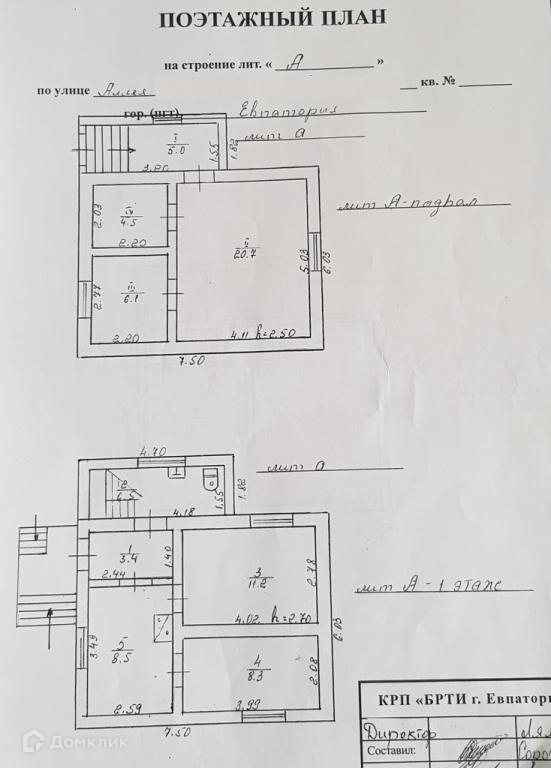 ПОЭТАЖНЫЙ ПЛАН
на строение лит. « А »
по улице Аллея кв. №
гор. (пгт) Евпатория
лит а
I
5.0
3.20
1.55
1.82
лит А-подвал
IV
4.5
2.03
2.20
II
20.7
5.03
6.03
III
6.1
2.77
2.20
4.11 h=2.50
7.50
4.70
лит а
2
6.5
4.18
1.55
1.82
1
3.4
1.40
2.44
3
11.2
2.78
4.02 h=2.70
лит А - 1 этаж
6.03
5
8.5
3.49
2.59
4
8.3
2.08
3.99
7.50
КРП «БРТИ г. Евпатори
Директор
Составил:
Домклик